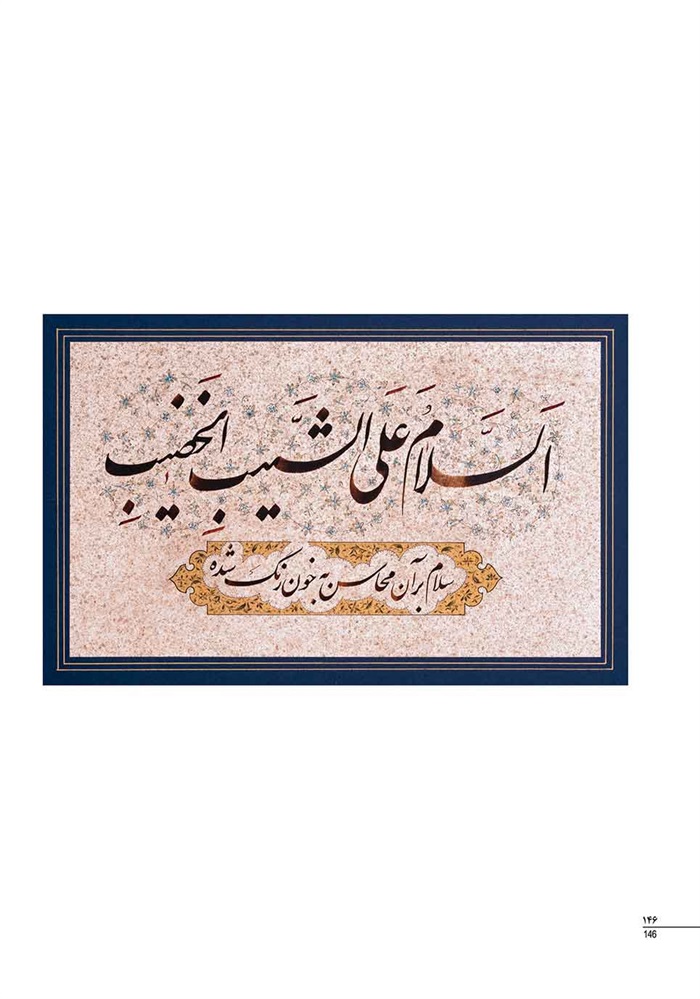 اَلسَّلامُ عَلَی الشَّیبِ الخَضیبِ
سلام بر آن محاسن به خون رنگ شده
۱۴۶
146